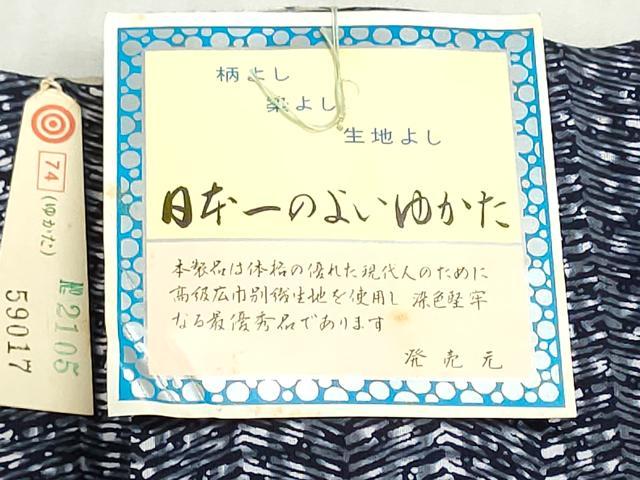 柄よし
染よし
生地よし
日本一のよいゆかた
本製品は体格の優れた現代人のために
高級広巾別誂生地を使用し 染色堅牢
なる最優秀品であります
発売元
74
(ゆかた)
№2105
59017